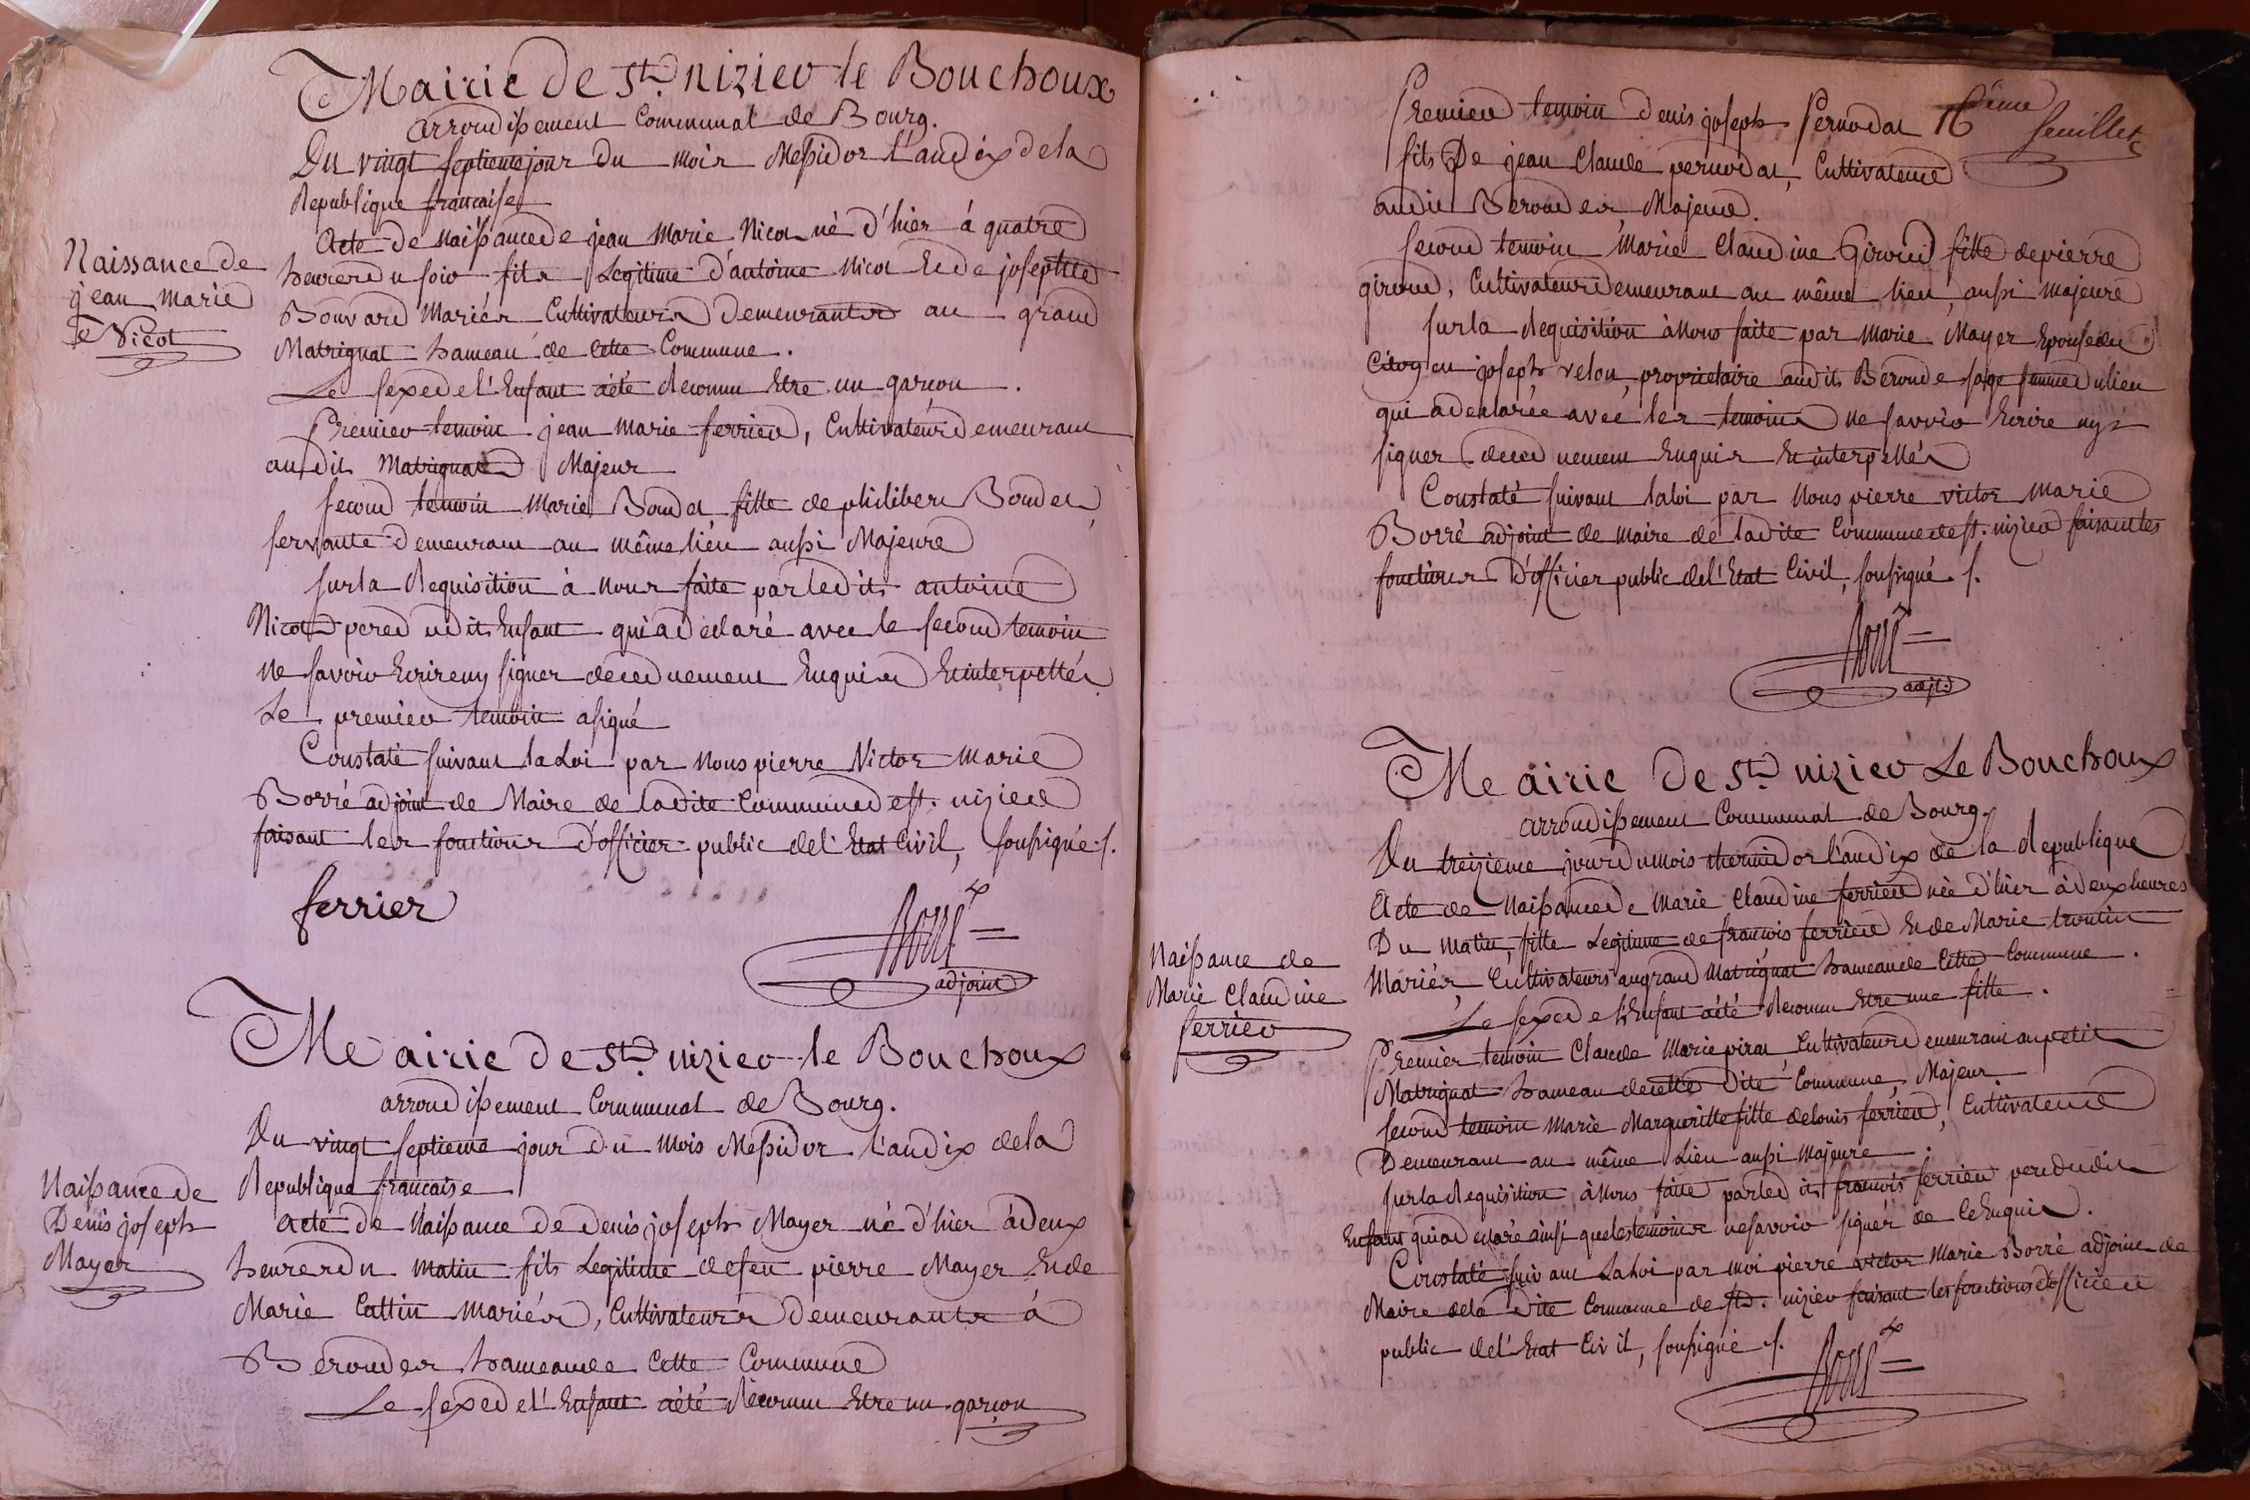 Mairie de St. nizier le Bouchoux
arrondissement Communal de Bourg.
Du vingt septieme jour du mois Messidor l'an dix de la
Republique francaise
Naissance de
jean marie
Nicot
Acte de naissance de jean Marie Nicot né d'hier à quatre
heures du soir fils Legitime d'antoine Nicot Et de josephte
Bouvard Mariés Cultivateurs Demeurants au grand
Matrignat hameau de cette Commune.
Le sexe de l'Enfant a été Reconnu Etre un garcon.
Premier temoin jean Marie ferrier, Cultivateur Demeurant
audit Matrignat Majeur
second temoin Marie Boudet fille de philibert Boudet
servante Demeurant au même lieu aussi Majeure
sur la Requisition à nous faite par ledit antoine
Nicot pere dudit Enfant qui a déclaré avec le second temoin
ne savoir Ecrire ny signer de ce duement Enquis Et interpellés
Le premier temoin a signé
Constaté suivant la Loi par nous pierre Victor Marie
Borré adjoint de Maire de ladite Commune de st. nizier
faisant les fonctions d'officier public de l'Etat Civil, soussigné ./.
ferrier
Borré
adjoint
Mairie de St. nizier le Bouchoux
arrondissement Communal de Bourg.
Du vingt septieme jour du Mois Messidor l'an dix de la
Republique francaise
Naissance de
Denis joseph
Mayer
Acte de Naissance de Denis joseph Mayer né d'hier à deux
heures du matin fils Legitime de feu pierre Mayer Et de
Marie Cattin Mariés, Cultivateurs Demeurants à
Berondes hameau de cette Commune
Le sexe de l'Enfant a été Reconnu Etre un garcon
16eme
feuillet
Premier temoin Denis joseph Pernodat
fils De jean Claude pernodat, Cultivateur
audit Berondes, Majeur.
second temoin Marie Claudine Giroud fille de pierre
giroud, Cultivateur Demeurant au même lieu, aussi majeure
sur la Requisition à Nous faite par Marie Mayer Epouse du
Citoyen joseph velon, proprietaire audit Beronde sage femme du lieu
qui a declarée avec les temoins ne savoir Ecrire ny
signer de ce duement Enquis Et interpellés
Constaté suivant la loi par Nous pierre victor Marie
Borré adjoint de Maire de ladite Commune de st. nizier faisant les
fonctions D'officier public de l'Etat Civil, soussigné ./.
Borré
adjt.
Mairie de St. nizier Le Bouchoux
arrondissement Communal de Bourg.
Du treizieme jour du mois thermidor l'an dix de la Republique
Naissance de
Marie Claudine
ferrier
Acte de Naissance de Marie Claudine ferrier née d'hier à deux heures
Du matin, fille Legitime de francois ferrier Et de Marie trontin
Mariés, Cultivateurs au grand Matrignat hameau de cette Commune.
Le sexe de l'Enfant a été Reconnu Etre une fille.
Premier temoin Claude Marie pirat Cultivateur Demeurant au petit
Matrignat hameau de cette dite Commune, Majeur
second temoin Marie Margueritte fille de louis ferrier, Cultivateur
Demeurant au même Lieu aussi Majeure.
sur la Requisition à Nous faite par ledit francois ferrier pere dudit
Enfant qui a declaré ainsi que les temoins ne savoir signer de ce Enquis.
Constaté suivant La Loi par moi pierre victor Marie Borré adjoint de
Maire de la dite Commune de st. nizier faisant les fonctions d'officier
public de l'Etat Civil, soussigné ./.
Borré